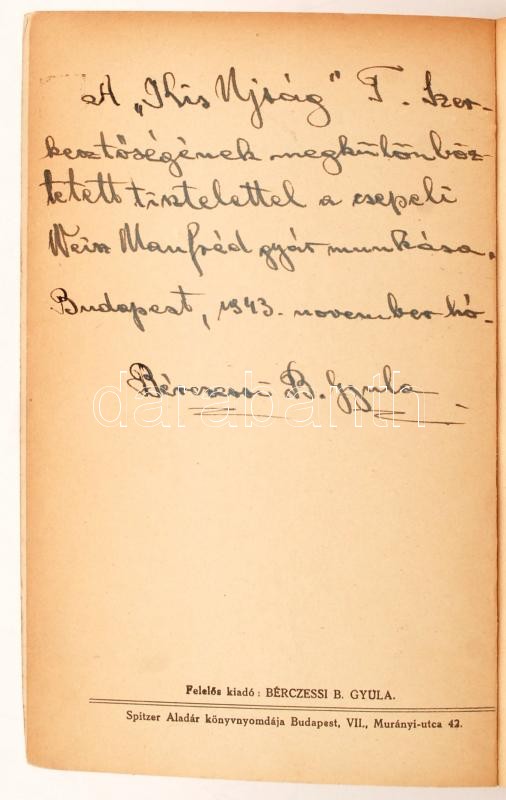 A „Kis Ujság" T. Szer-
kesztőségének megkülönböz-
tetett tisztelettel a csepeli
Weisz Manfréd gyár munkása.
Budapest, 1943. november hó-
Bérczessi B. Gyula
darabanth
Felelős kiadó : BÉRCZESSI B. GYULA.
Spitzer Aladár könyvnyomdája Budapest, VII., Murányi-utca 42.